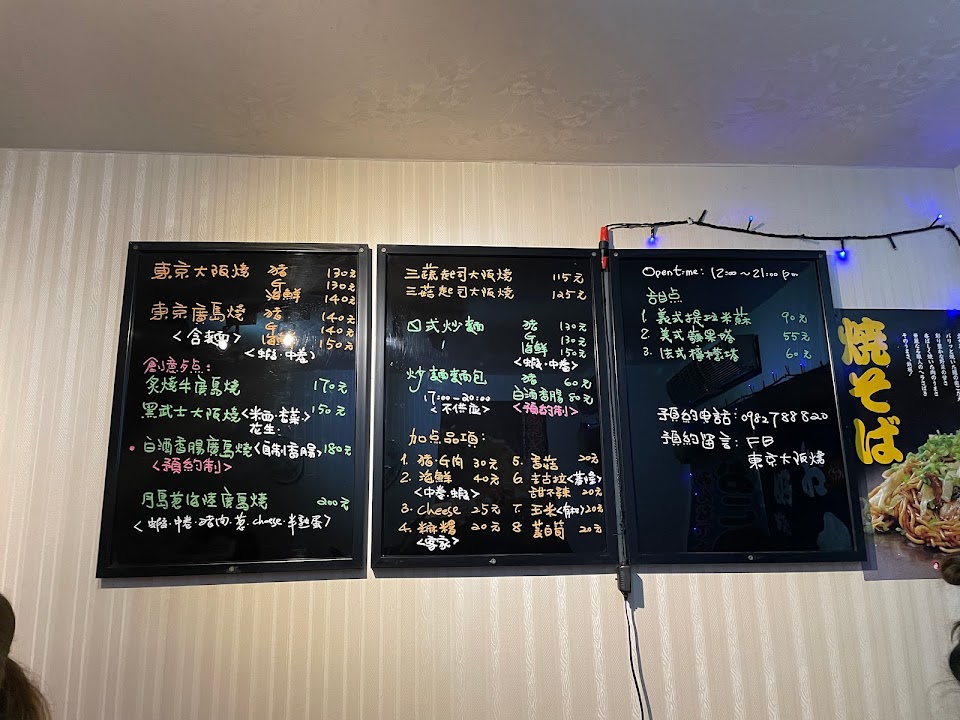 東京大阪燒 豬 130元
牛 130元
海鮮 140元
東京廣島燒 豬 140元
牛 140元
<含麵> 海鮮 150元
<蝦.中卷>
創意歺点:
炙燒牛廣島燒 170元
黑武士大阪燒 150元
花生
白酒香腸廣島燒<自制香腸>180元
<預約制>
月島葱海陸廣島燒 200元
<蝦.中卷.豬肉.葱.cheese.半熟蛋>
三蔬起司大阪燒 115元
三菇起司大阪燒 125元
日式炒麵 豬 130元
牛 130元
海鮮 150元
<蝦.中卷>
炒麵麵包 豬 60元
17:00-20:00 白酒香腸 80元
<不供應> <預約制>
加点品項:
1. 豬.牛肉 30元
2. 海鮮 40元
<中卷.蝦>
3. Cheese 25元
4. 麻糬 20元
<客家>
5. 香菇 20元
6. 吉古拉<基隆>
甜不辣 20元
7. 玉米<有机>20元
8 茭白筍 20元
Opentime: 12:00~21:00 pm
甜点
1. 美式提拉米蘇 90元
2. 美式蘋果塔 55元
3. 法式檸檬塔 60元
預約電話:0982788820
預約留言: FB
東京大阪燒
焼そば